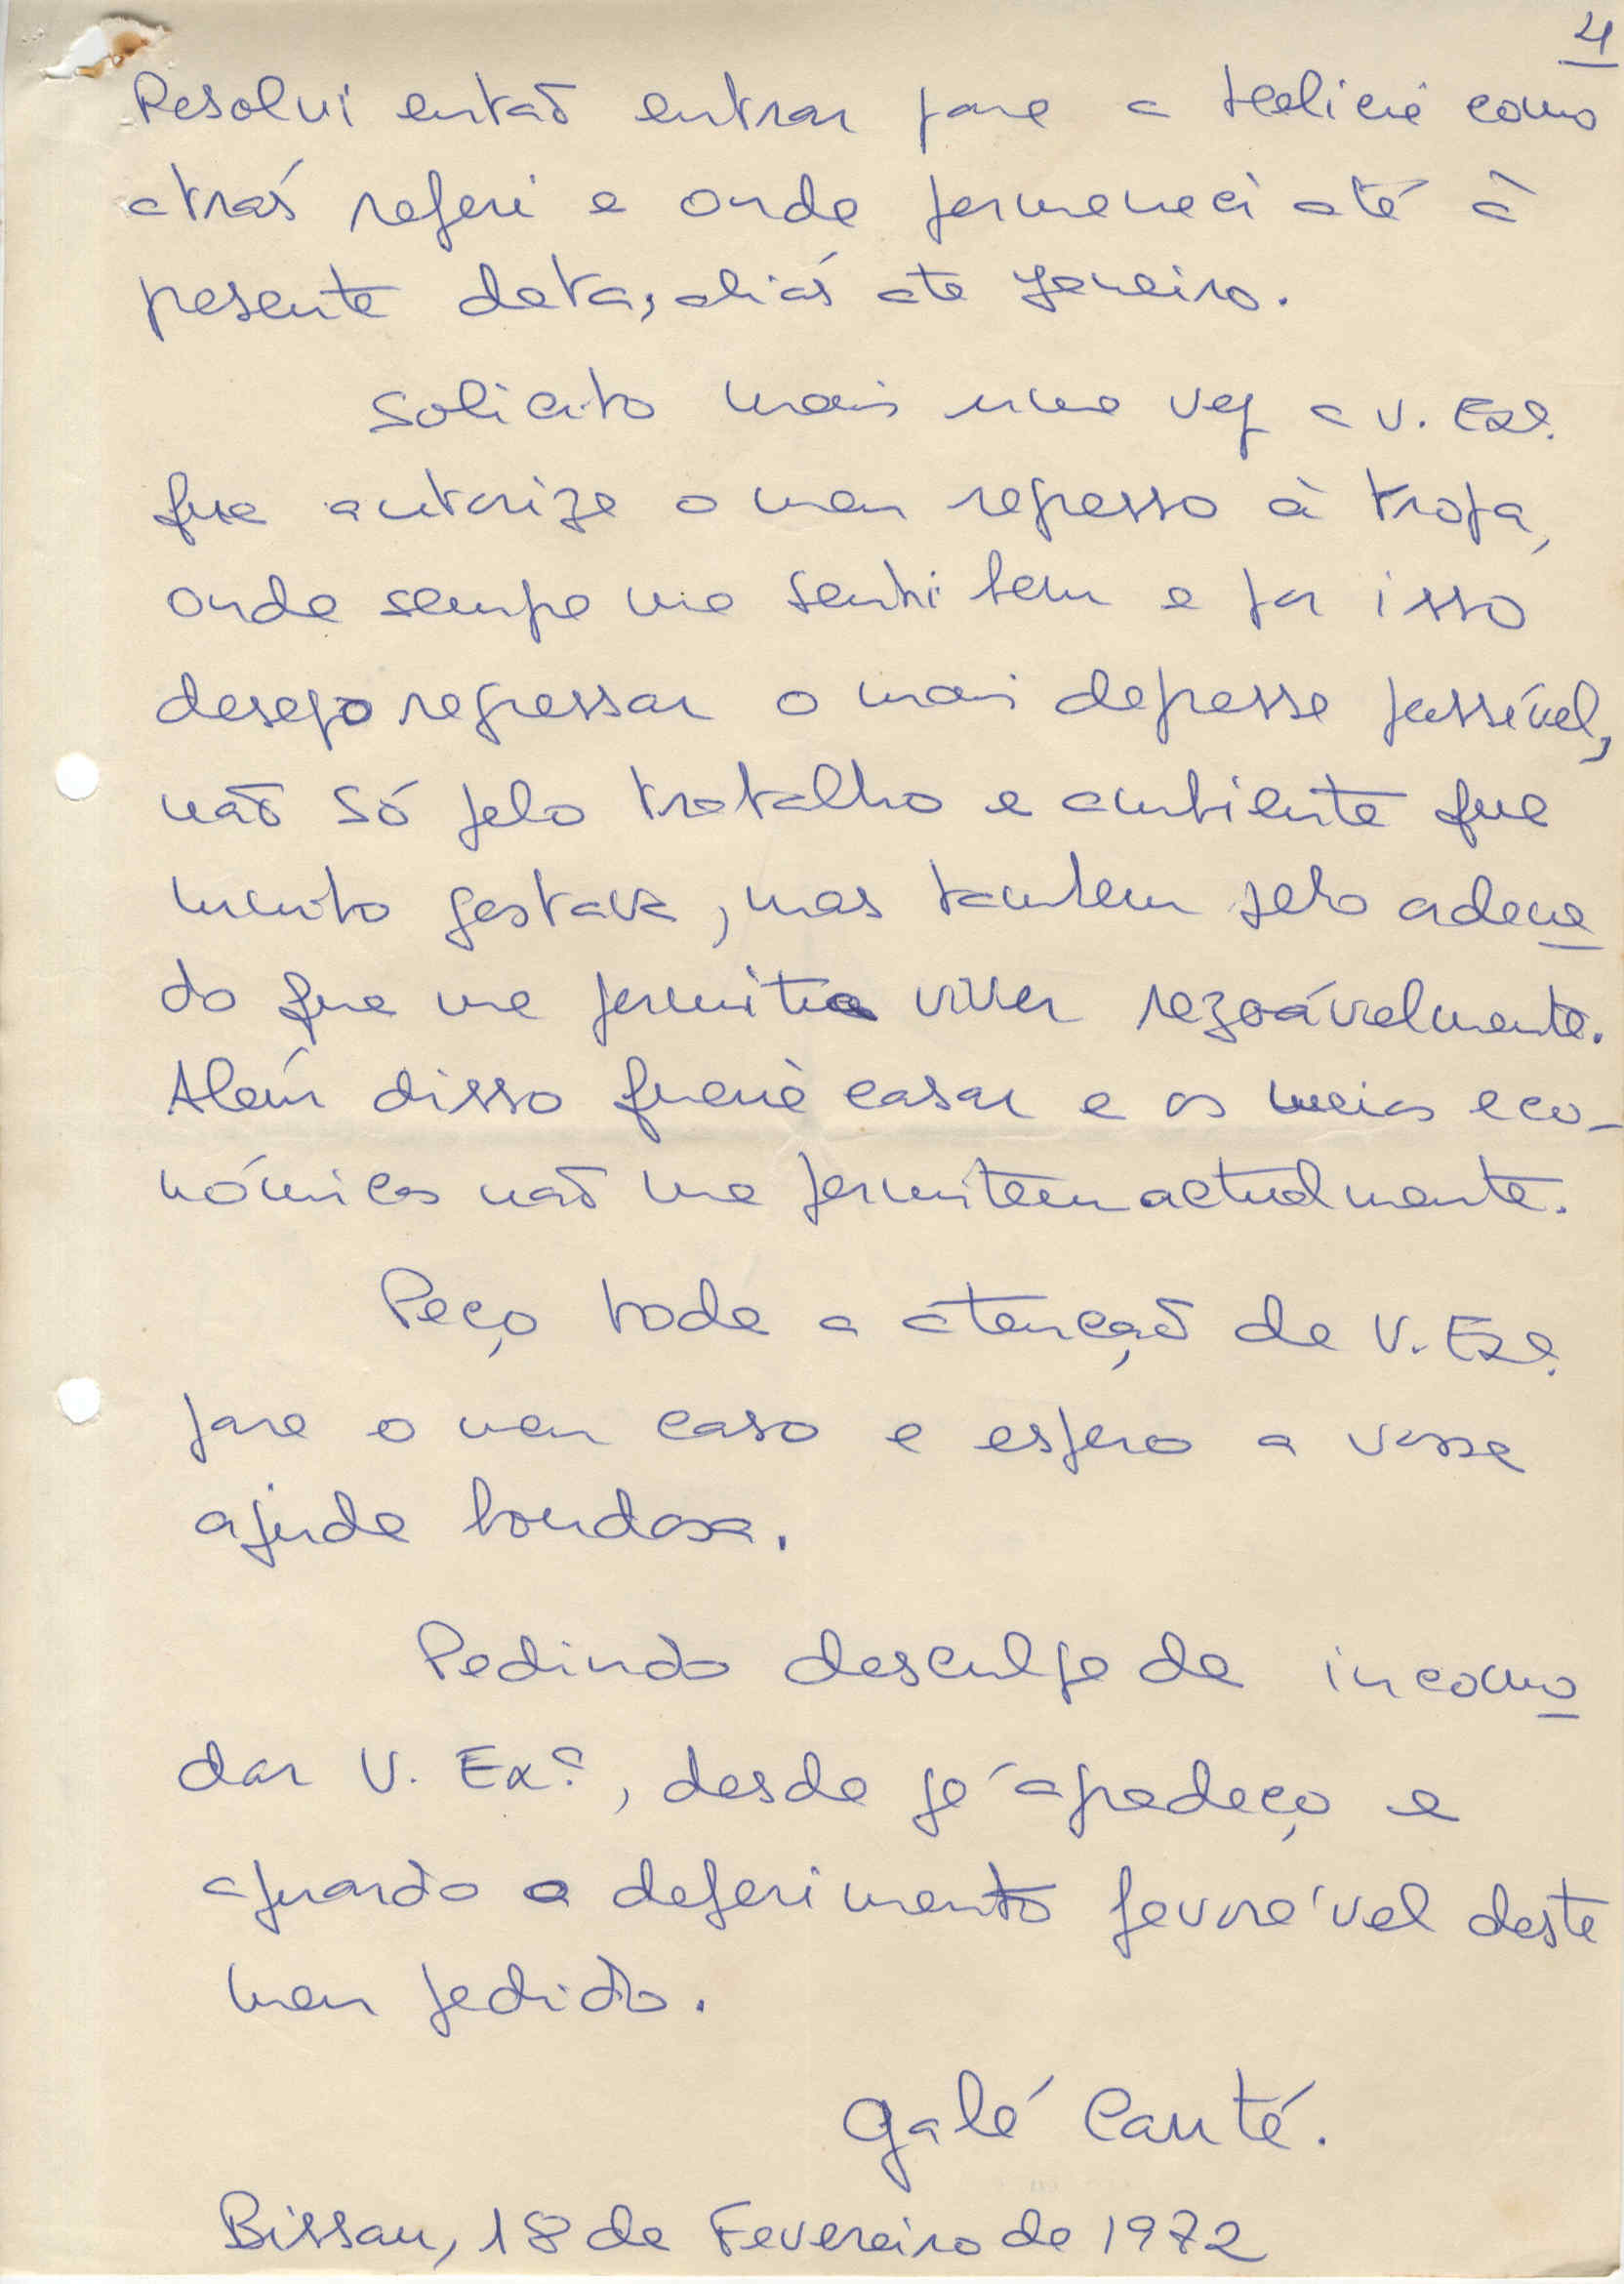 4
Resolvi então entrar para a policia como
atrás referi e onde permaneci até à
presente data, aliás ate Janeiro.
Solicito mais uma vez a V. Exª.
que autorize o meu regresso à tropa,
onde sempre me senti bem e por isso
desejo regressar o mais depressa possível,
não só pelo trabalho e ambiente que
muito gostava, mas tambem pelo ordena
do que me permitia viver rezoávelmente.
Além disso queria casar e os meios eco-
nómicos não me permitem actualmente.
Peço toda a atenção de V. Exª.
para o meu caso e espero a vossa
ajuda bondosa.
Pedindo desculpa de incomo
dar V. Exª., desde já agradeço e
aguardo o deferimento favorável deste
meu pedido.
Galé Canté.
Bissau, 18 de Fevereiro de 1972